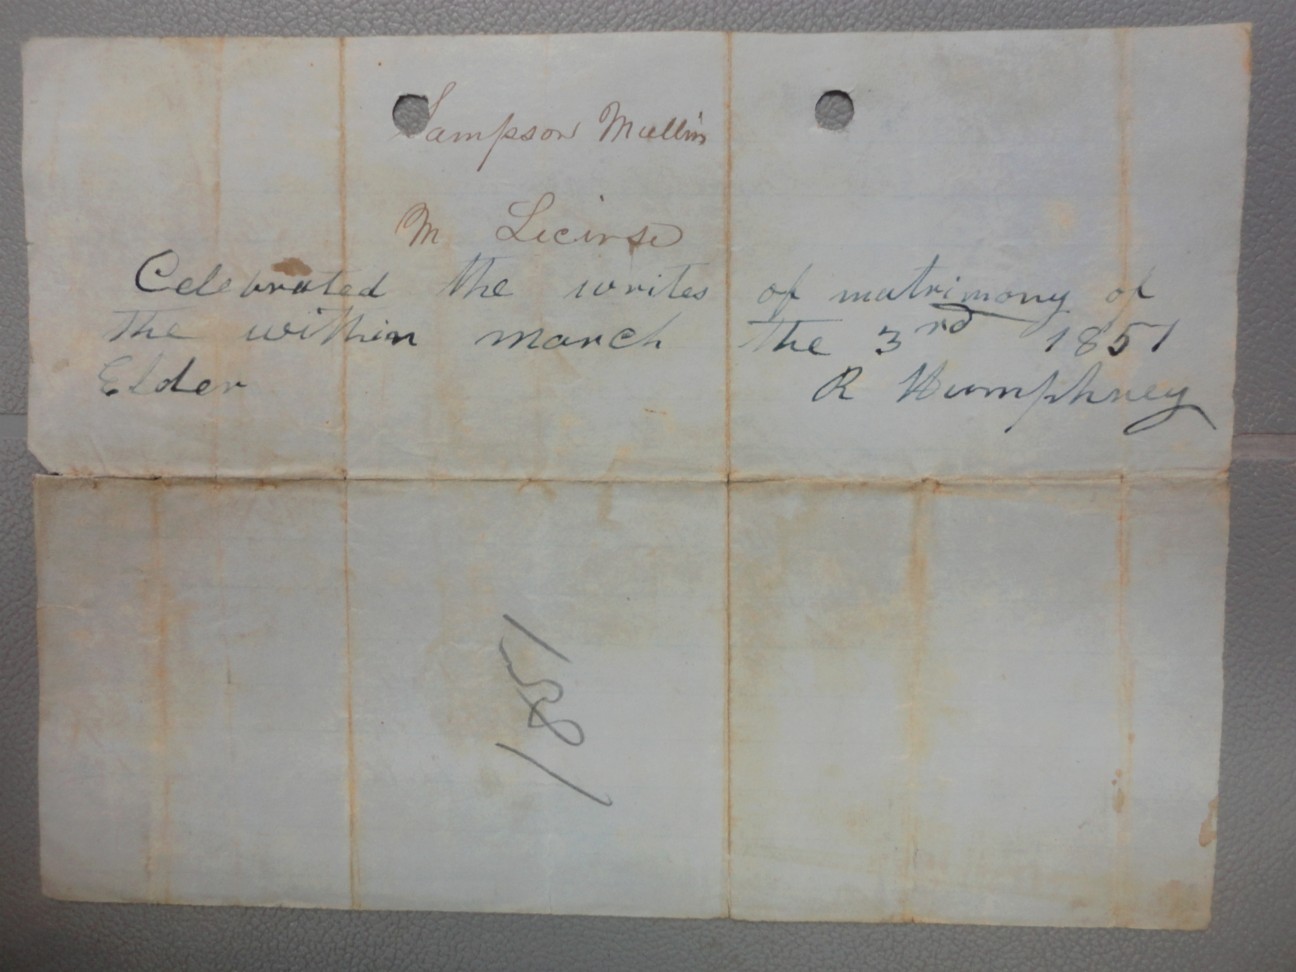 Sampson Mullin
M Licinse
Celebrated the writes of matrimony of
the within march the 3rd 1851
Elder R Humphrey
1851